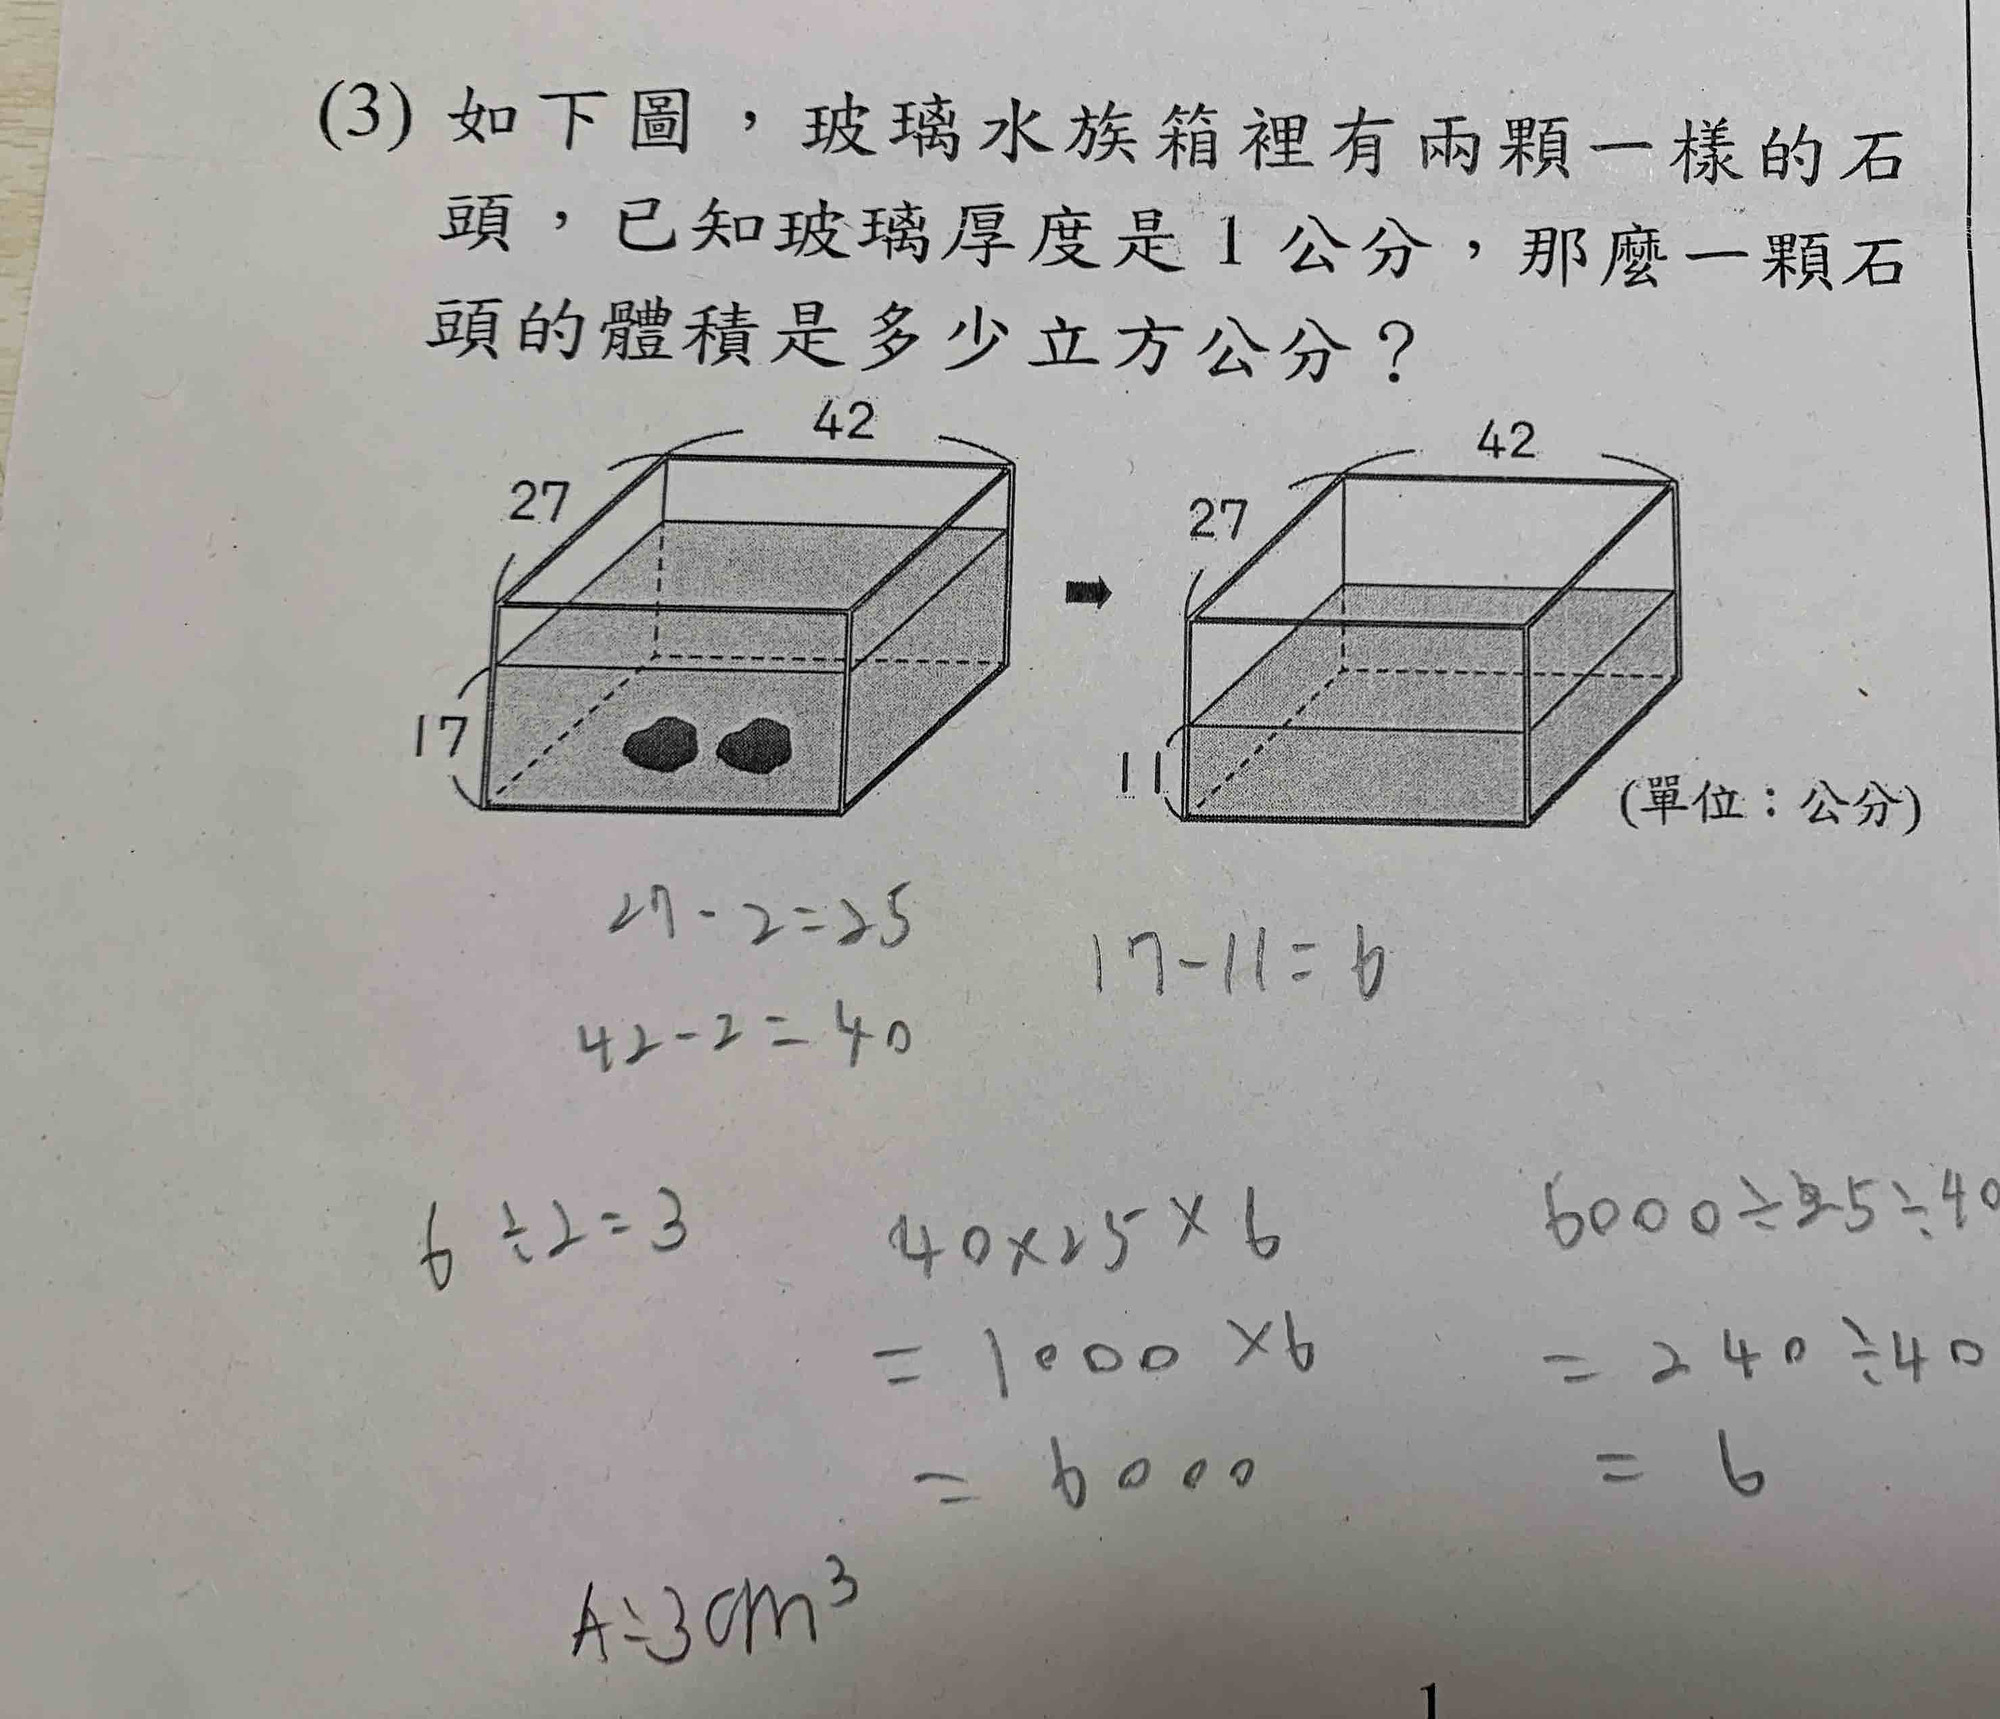 (3) 如下圖，玻璃水族箱裡有兩顆一樣的石
頭，已知玻璃厚度是1公分，那麼一顆石
頭的體積是多少立方公分？
42
27
17
42
27
11
(單位：公分)
27-2=25
17-11=6
42-2=40
6÷2=3
40×25×6
=1000×6
=6000
6000÷25÷40
=240÷40
=6
A:3cm³
1